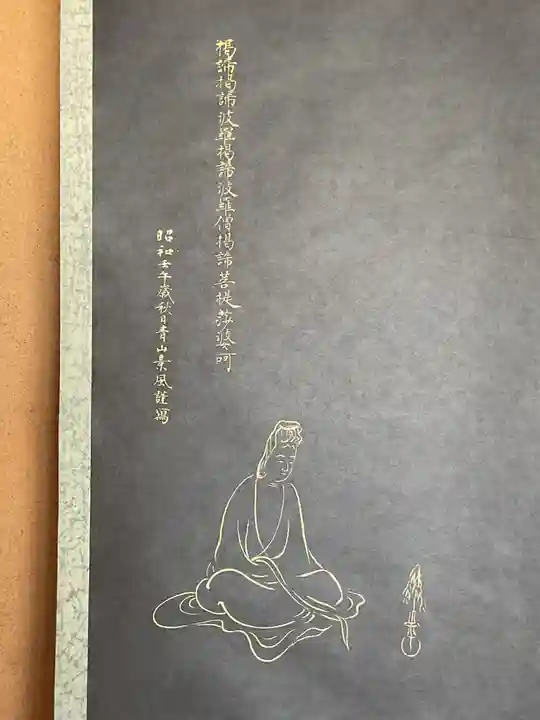 揭諦揭諦波羅揭諦波羅僧揭諦菩提莎婆呵
昭和壬午歳秋日青山景風謹寫